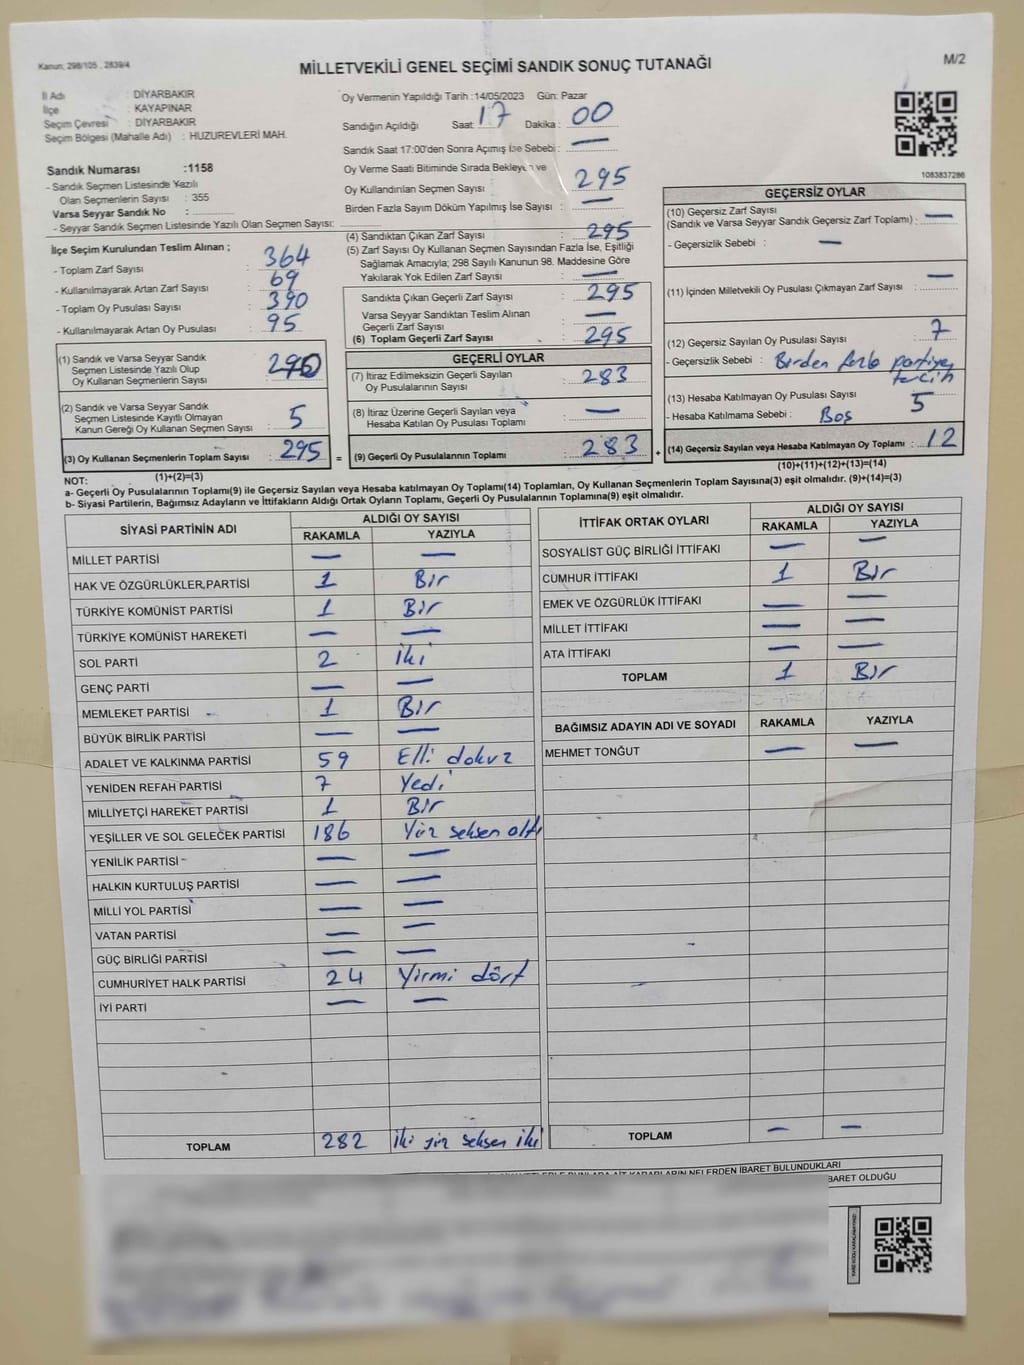 Kanun; 298/105 , 2839/4
MİLLETVEKİLİ GENEL SEÇİMİ SANDIK SONUÇ TUTANAĞI
M/2
İl Adı : DİYARBAKIR
İlçe : KAYAPINAR
Seçim Çevresi : DİYARBAKIR
Seçim Bölgesi (Mahalle Adı) : HUZUREVLERİ MAH.
Sandık Numarası :1158
- Sandık Seçmen Listesinde Yazılı
Olan Seçmenlerin Sayısı : 355
Varsa Seyyar Sandık No :
- Seyyar Sandık Seçmen Listesinde Yazılı Olan Seçmen Sayısı:
Oy Vermenin Yapıldığı Tarih :14/05/2023 Gün: Pazar
Sandığın Açıldığı Saat : 17 Dakika : 00
Sandık Saat 17:00'den Sonra Açımış İse Sebebi : —
Oy Verme Saati Bitiminde Sırada Bekleyen ve
Oy Kullandırılan Seçmen Sayısı : 295
Birden Fazla Sayım Döküm Yapılmış İse Sayısı : —
1083837286
İlçe Seçim Kurulundan Teslim Alınan ;
- Toplam Zarf Sayısı : 364
- Kullanılmayarak Artan Zarf Sayısı : 69
- Toplam Oy Pusulası : 390
- Kullanılmayarak Artan Oy Pusulası : 95
(1) Sandık ve Varsa Seyyar Sandık
Seçmen Listesinde Yazılı Olup
Oy Kullanan Seçmenlerin Sayısı : 290
(2) Sandık ve Varsa Seyyar Sandık
Seçmen Listesinde Kayıtlı Olmayan
Kanun Gereği Oy Kullanan Seçmen Sayısı : 5
(3) Oy Kullanan Seçmenlerin Toplam Sayısı : 295
(1)+(2)=(3)
(4) Sandıktan Çıkan Zarf Sayısı : 295
(5) Zarf Sayısı Oy Kullanan Seçmen Sayısından Fazla İse, Eşitliği
Sağlamak Amacıyla; 298 Sayılı Kanunun 98. Maddesine Göre
Yakılarak Yok Edilen Zarf Sayısı : —
Sandıkta Çıkan Geçerli Zarf Sayısı : 295
Varsa Seyyar Sandıktan Teslim Alınan
Geçerli Zarf Sayısı : —
(6) Toplam Geçerli Zarf Sayısı : 295
GEÇERLİ OYLAR
(7) İtiraz Edilmeksizin Geçerli Sayılan
Oy Pusulalarının Sayısı : 283
(8) İtiraz Üzerine Geçerli Sayılan veya
Hesaba Katılan Oy Pusulası Toplamı : —
= (9) Geçerli Oy Pusulalarının Toplamı : 283 +
GEÇERSİZ OYLAR
(10) Geçersiz Zarf Sayısı
(Sandık ve Varsa Seyyar Sandık Geçersiz Zarf Toplamı) : —
- Geçersizlik Sebebi : —
(11) İçinden Milletvekili Oy Pusulası Çıkmayan Zarf Sayısı : —
(12) Geçersiz Sayılan Oy Pusulası Sayısı : 7
- Geçersizlik Sebebi : Birden fazla partiye
tercih
(13) Hesaba Katılmayan Oy Pusulası Sayısı : 5
- Hesaba Katılmama Sebebi : Boş
(14) Geçersiz Sayılan veya Hesaba Katılmayan Oy Toplamı : 12
(10)+(11)+(12)+(13)=(14)
NOT:
a- Geçerli Oy Pusulalarının Toplamı(9) ile Geçersiz Sayılan veya Hesaba katılmayan Oy Toplamı(14) Toplamları, Oy Kullanan Seçmenlerin Toplam Sayısına(3) eşit olmalıdır. (9)+(14)=(3)
b- Siyasi Partilerin, Bağımsız Adayların ve İttifakların Aldığı Ortak Oyların Toplamı, Geçerli Oy Pusulalarının Toplamına(9) eşit olmalıdır.
SİYASİ PARTİNİN ADI ALDIĞI OY SAYISI
RAKAMLA YAZIYLA
MİLLET PARTİSİ — —
HAK VE ÖZGÜRLÜKLER PARTİSİ 1 Bir
TÜRKİYE KOMÜNİST PARTİSİ 1 Bir
TÜRKİYE KOMÜNİST HAREKETİ — —
SOL PARTİ 2 iki
GENÇ PARTİ — —
MEMLEKET PARTİSİ 1 Bir
BÜYÜK BİRLİK PARTİSİ — —
ADALET VE KALKINMA PARTİSİ 59 Elli dokuz
YENİDEN REFAH PARTİSİ 7 Yedi
MİLLİYETÇİ HAREKET PARTİSİ 1 Bir
YEŞİLLER VE SOL GELECEK PARTİSİ 186 Yüz seksen altı
YENİLİK PARTİSİ — —
HALKIN KURTULUŞ PARTİSİ — —
MİLLİ YOL PARTİSİ — —
VATAN PARTİSİ — —
GÜÇ BİRLİĞİ PARTİSİ — —
CUMHURİYET HALK PARTİSİ 24 Yirmi dört
İYİ PARTİ — —
TOPLAM 282 iki yüz seksen iki
İTTİFAK ORTAK OYLARI ALDIĞI OY SAYISI
RAKAMLA YAZIYLA
SOSYALİST GÜÇ BİRLİĞİ İTTİFAKI — —
CUMHUR İTTİFAKI 1 Bir
EMEK VE ÖZGÜRLÜK İTTİFAKI — —
MİLLET İTTİFAKI — —
ATA İTTİFAKI — —
TOPLAM 1 Bir
BAĞIMSIZ ADAYIN ADI VE SOYADI RAKAMLA YAZIYLA
MEHMET TONĞUT — —
TOPLAM — —
NELERDEN İBARET BULUNDUKLARI
İBARET OLDUĞU